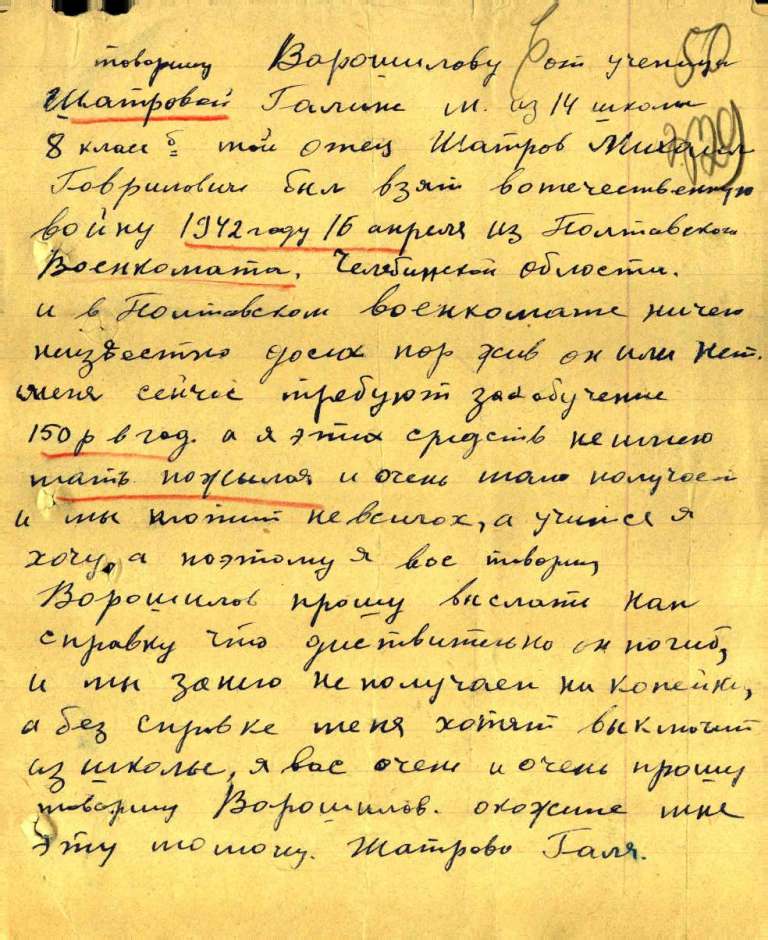 товарищу Ворошилову от ученица 50
Шатровой Галине М. из 14 школы
8 класс б мой отец Шатров Михаил 329
Говрилович был взят вотечественную
войну 1942 году 16 апреля из Полтавского
Военкомата, Челябинской области.
и в Полтавском военкомате ничего
неизвестно досих пор жив он или нет.
меня сейчас требуют за обучение
150 р в год. а я этих средств не имею
мать пожылая и очень мало получает
и мы платит невсилах, а учится я
хочу, а поэтому я вас товарищ
Ворошилов прошу выслать нам
справку что диствительно он погиб,
и мы занего не получаем ни копейки,
а без справке меня хотят выключит
из школы, я вас очень и очень прошу
товарищ Ворошилов. окожите мне
эту помощу. Шатрова Галя.